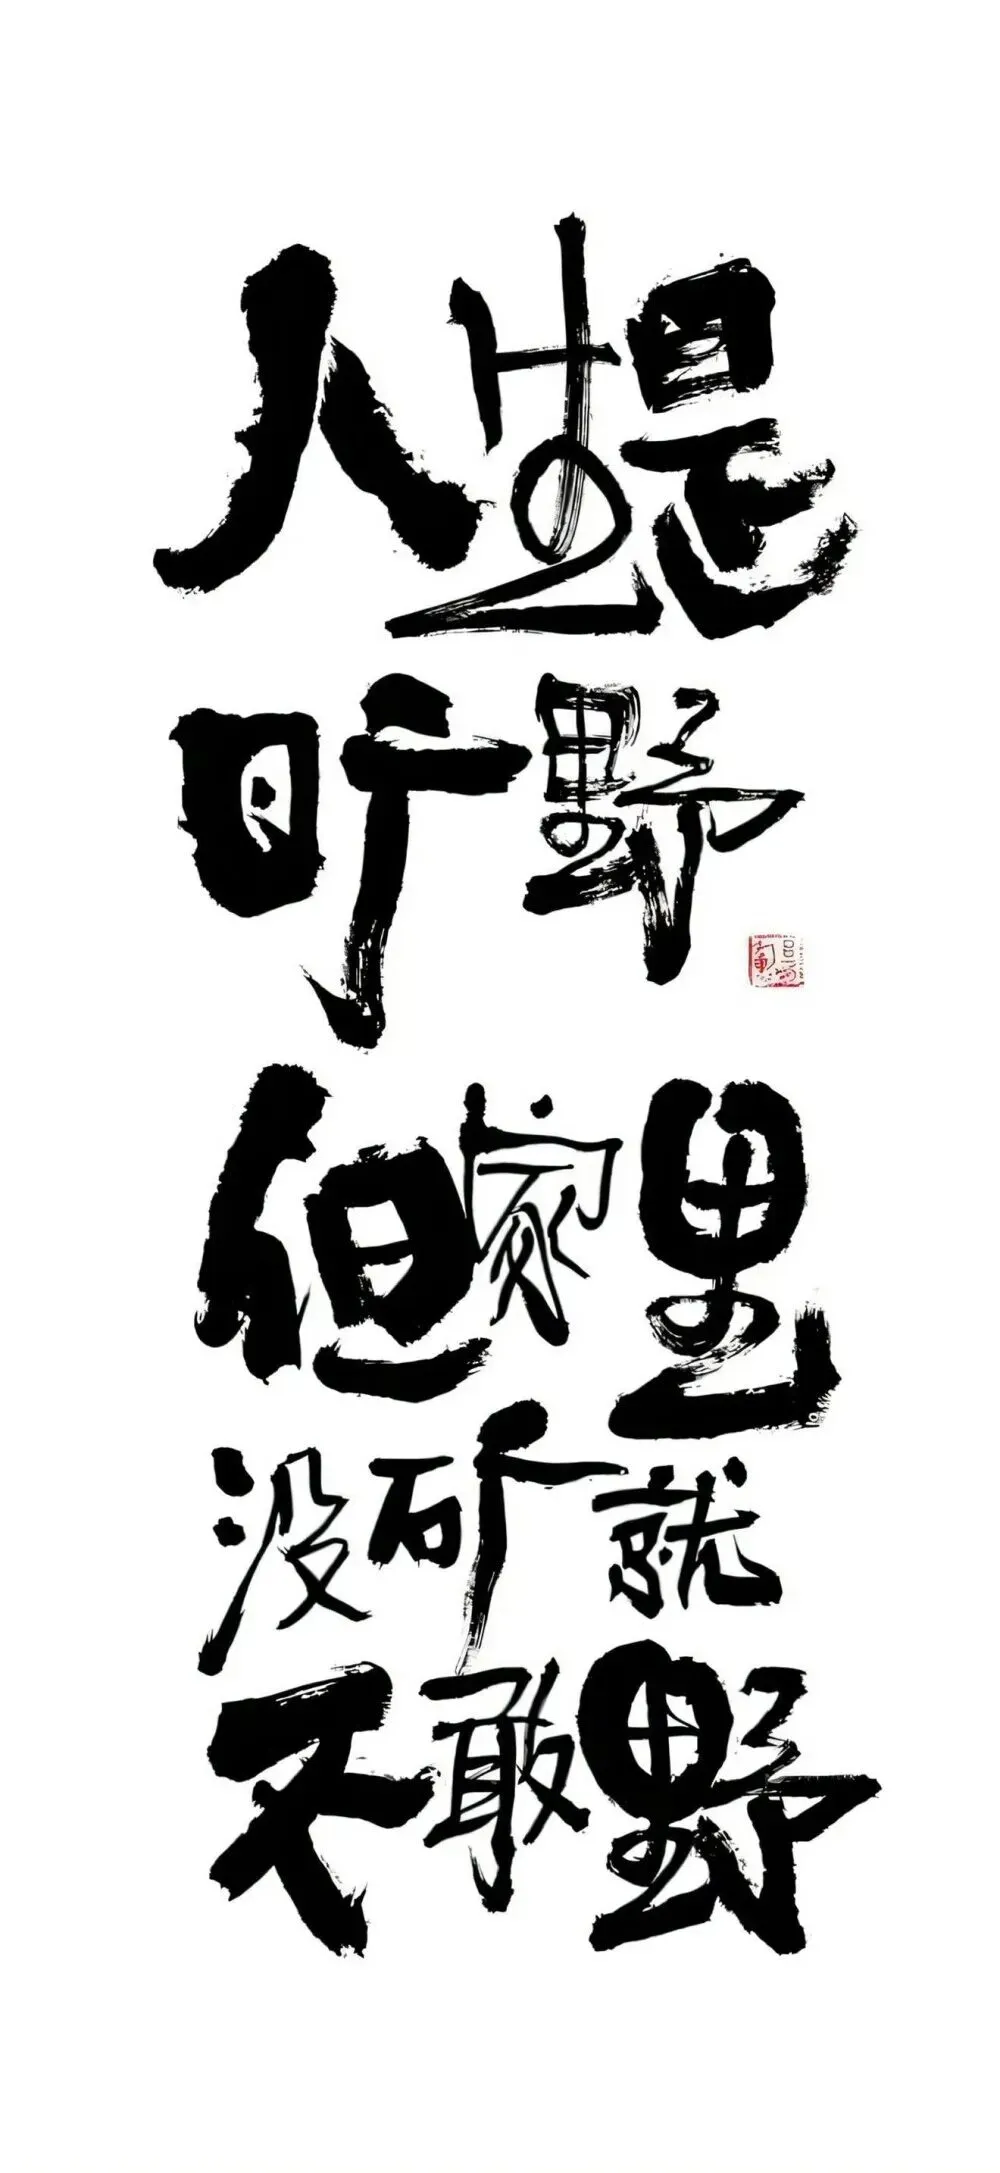 人生是
旷野
但家里
没矿就
不敢野